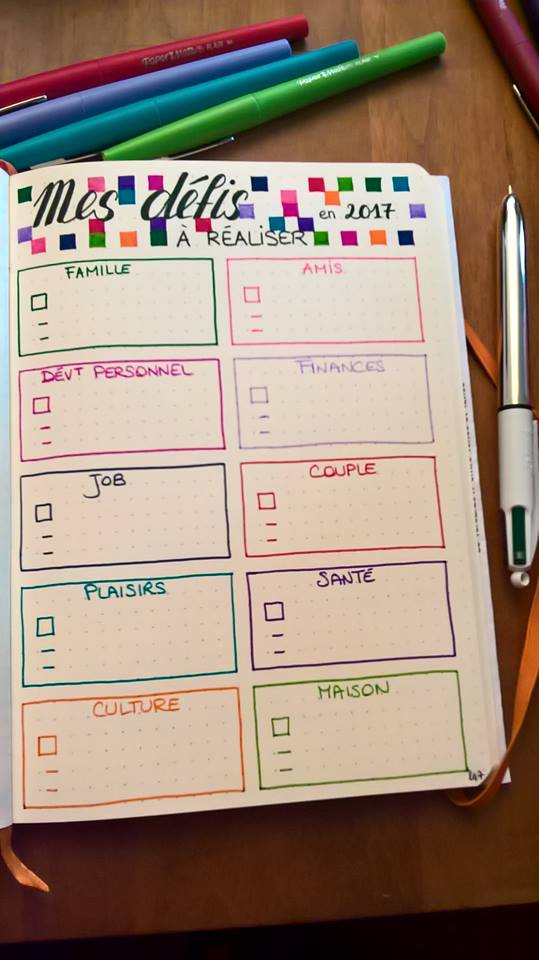 Paper Mate FLAIR M
Paper Mate FLAIR M
Mes défis
en 2017
À RÉALISER
FAMILLE
AMIS
DÉVT PERSONNEL
FINANCES
JOB
COUPLE
PLAISIRS
SANTÉ
CULTURE
MAISON
47